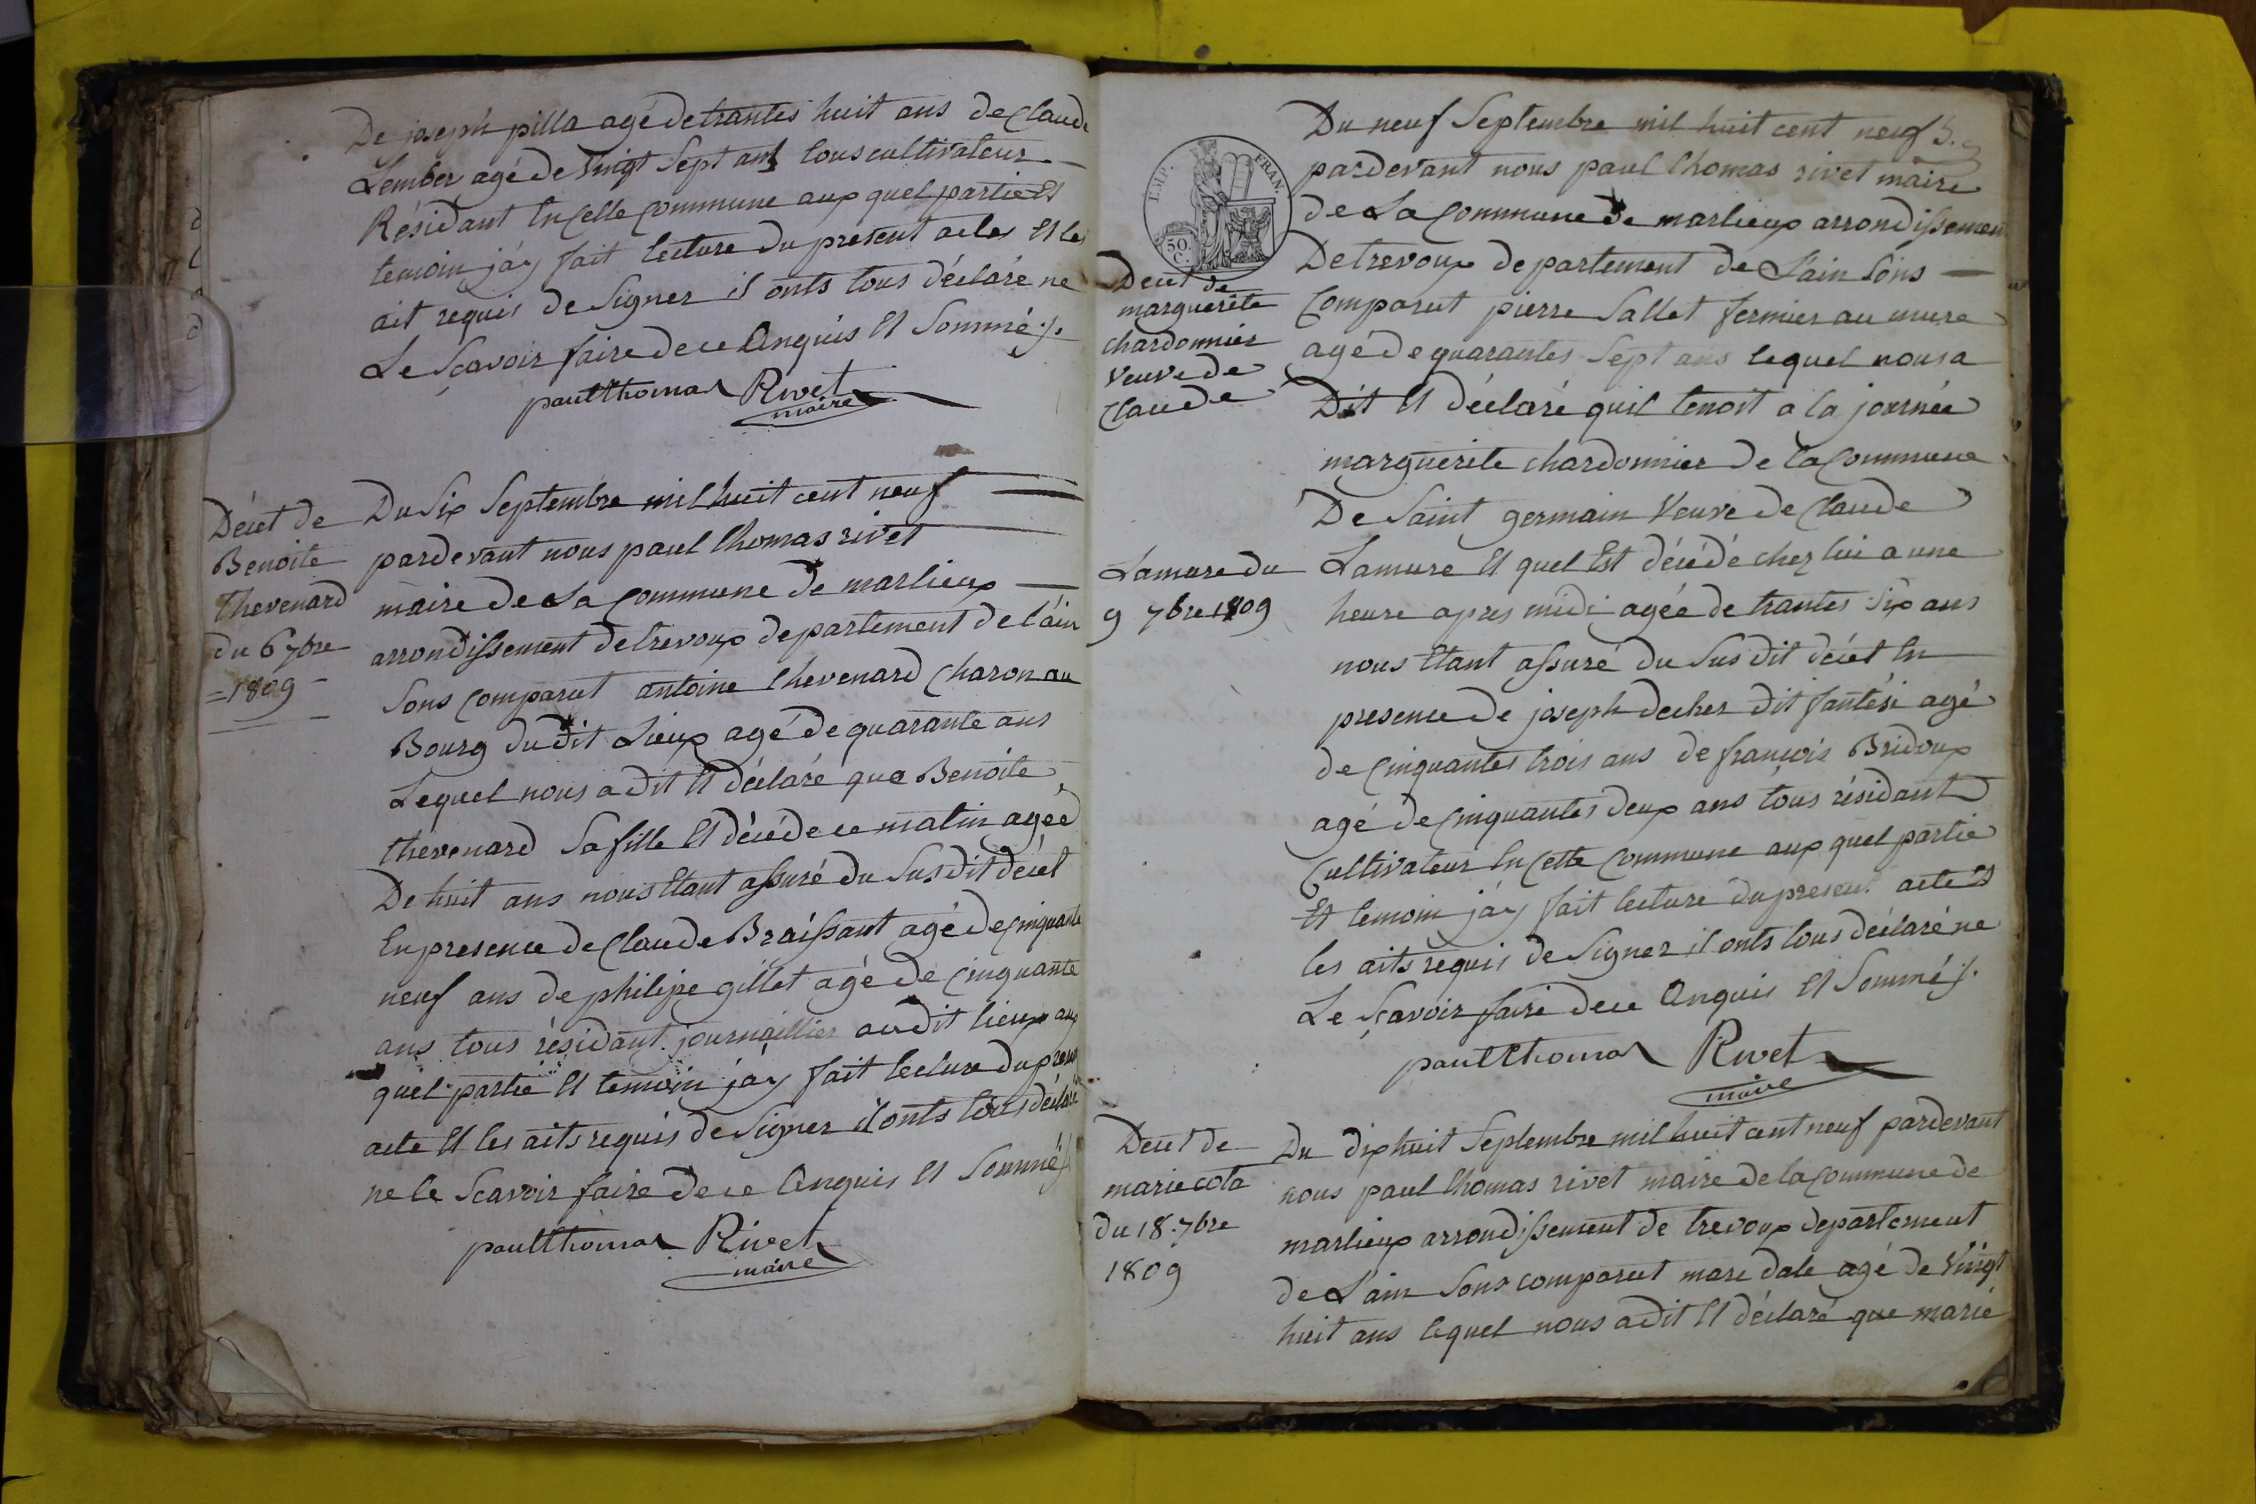 De joseph pilla agé de trantes huit ans de Claude
Lember agé de Vingt Sept ans tous cultivateur
Résidant En Celle Commune aux quel partie Et
temoin j'áy fait lecture du présent actes Et les
ait requis de Signer il onts tous déclaré ne
Le Sçavoir faire de ce Enquis Et Sommé ./.
paul thomas Rivet
maire
Décet de
Benoite
thevenard
du 6 7bre
=1809=
Du Six Septembre mil huit cent neuf
pardevant nous paul thomas rivet
maire de La Commune de marlieux
arrondissement de trevoux departement de l'áin
Sons Comparut antoine thevenard Charon au
Bourg du dit Lieux agé de quarante ans
Lequel nous a dit Et déclaré que Benoite
thevenard Sa fille Et décéde ce matin agéé
De huit ans nous Etant assuré du Susdit décét
En presence de Claude Braissant agé de Cinquante
neuf ans de philipe gillet agé de Cinquante
ans tous résidant journaillier audit lieux aux
quel partie Et temoin j'áy fait lecture du presen
acte Et les aits requis de Signer il onts tous déclaré
ne le Scavoir faire de ce Enquis Et Sommé ./.
paul thomas Rivet
maire
EMP. FRAN.
50 C.
Décét de
marguerite
chardonnier
Veuve de
Claude
Lamure du
9 7bre 1809
Du neuf Septembre mil huit cent neuf
pardevant nous paul thomas rivet maire
de La Commune de marlieux arrondissemen
De trevoux departement de L'ain Sons
Comparut pierre Sallet fermier au mure
agé de quarantes Sept ans lequel nous a
Dit Et déclaré quil tenoit a la journée
marguerite chardonnier de la Commune
De Saint germain Veuve de Claude
Lamure Et quel Est décédé chez lui a une
heure apres midi agéé de trantes Six ans
nous Etant assuré du Susdit décét En
presence de joseph decher dit fantési agé
de Cinquantes trois ans de françois Bridoux
agé de Cinquantes deux ans tous résidant
Cultivateur En Cette Commune aux quel partie
Et temoin j'áy fait lecture du present acte Et
les aits requis de Signer il onts tous déclaré ne
Le Sçavoir faire de ce Enquis Et Sommé ./.
paul thomas Rivet
maire
Décét de
marie cota
du 18 7bre
1809
Du dix huit Septembre mil huit cent neuf pardevant
nous paul thomas rivet maire de la Commune de
marlieux arrondissement de trevoux departement
de L'ain Sons comparut marc dale agé de Vingt
huit ans lequel nous a dit Et déclaré que marie